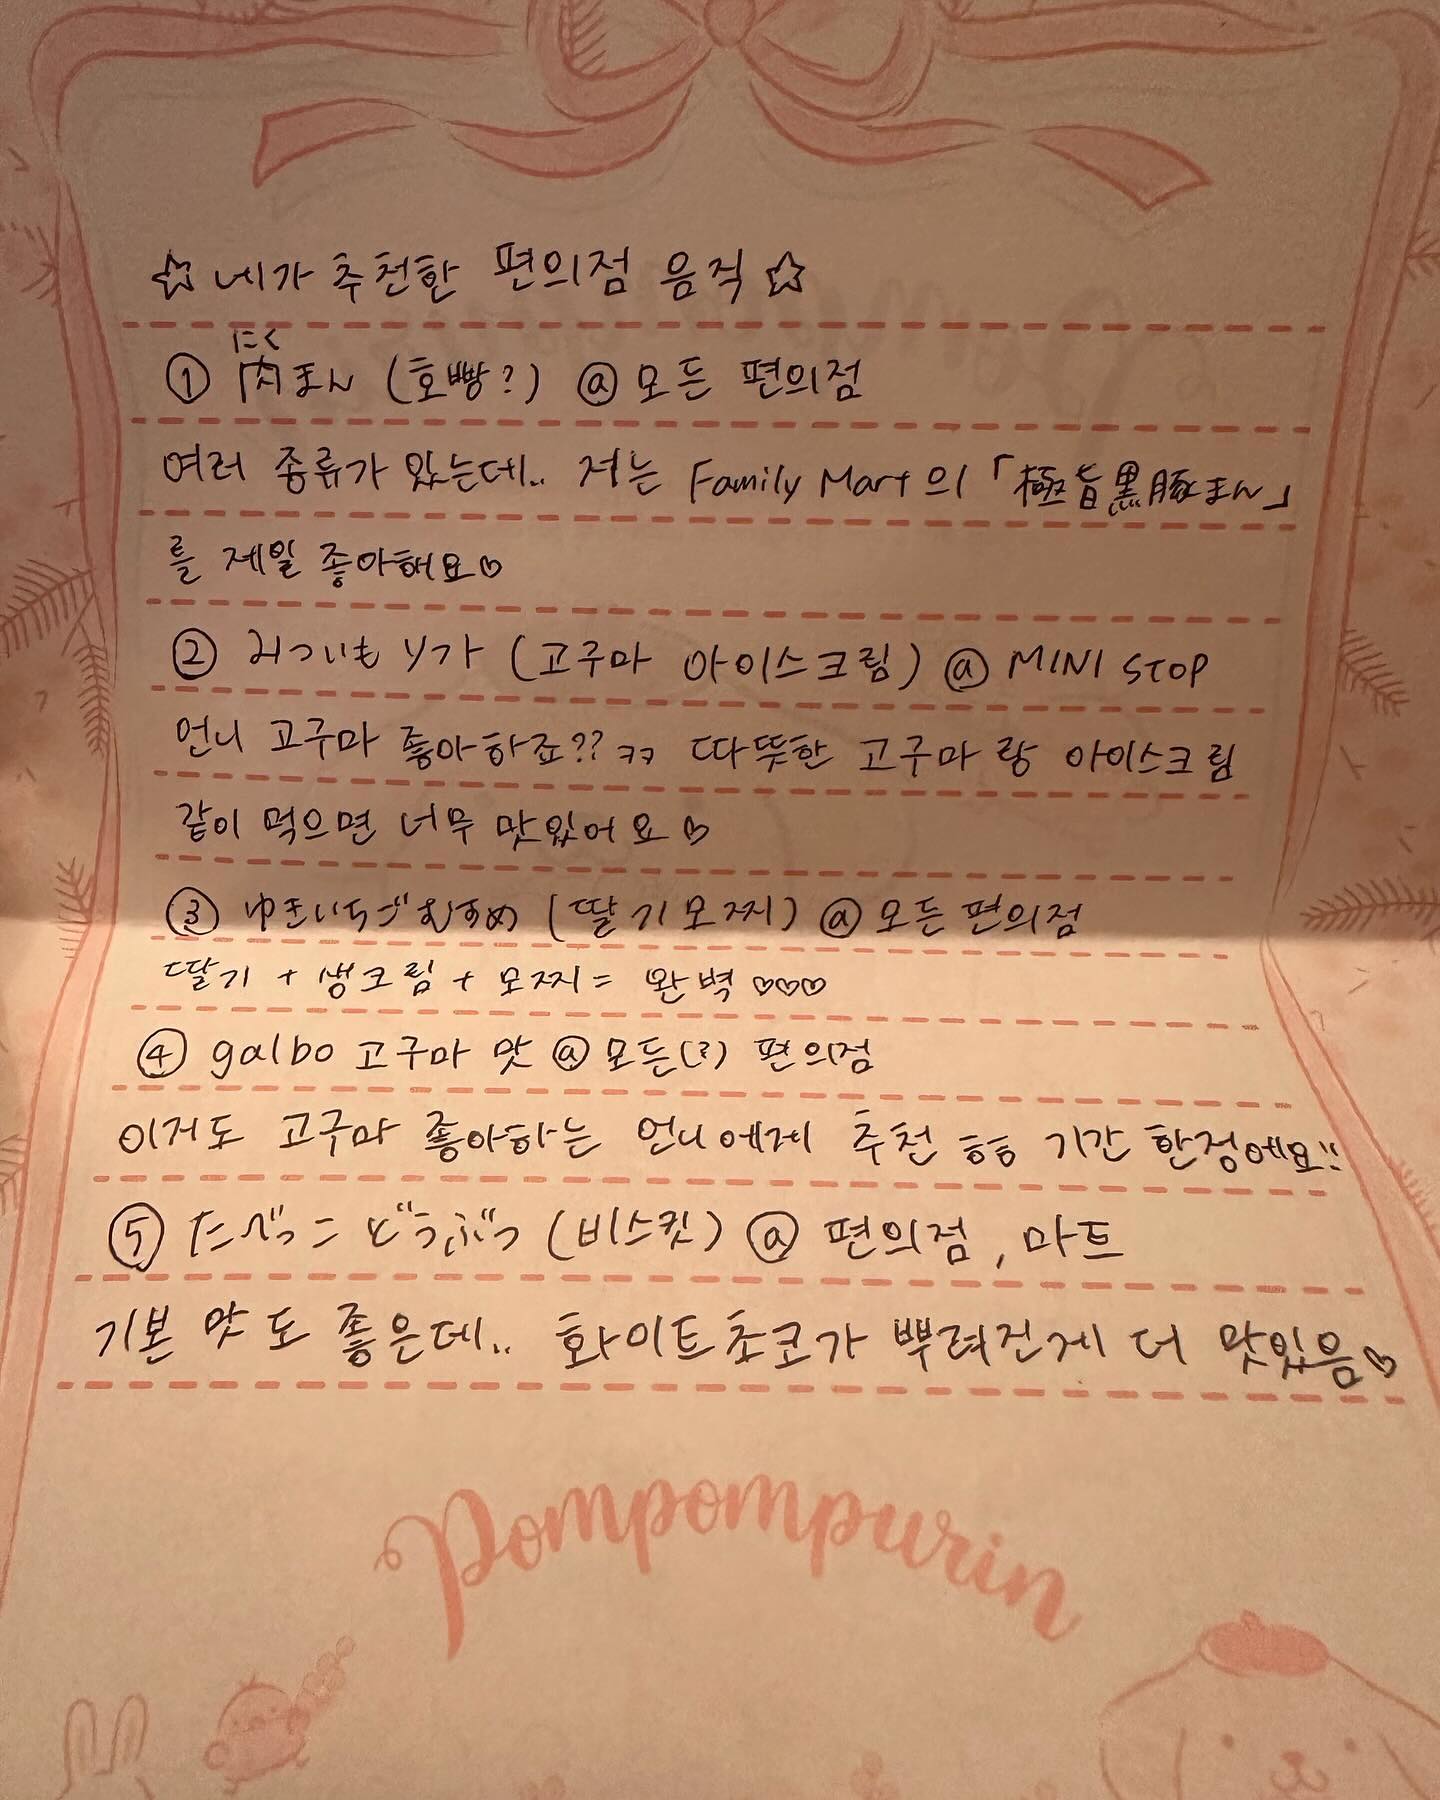 ☆ 네가 추천한 편의점 음직 ☆
にく
① 肉まん (호빵?) @ 모든 편의점
여러 종류가 있는데.. 저는 Family Mart 의 「極旨黒豚まん」
를 제일 좋아해요♡
② みついも Y가 (고구마 아이스크림) @ MINI STOP
언니 고구마 좋아하죠?? ㅋㅋ 따뜻한 고구마 랑 아이스크림
같이 먹으면 너무 맛있어요♡
③ ゆきいちごむすめ (딸기모찌) @ 모든 편의점
딸기 + 생크림 + 모찌 = 완벽 ♡♡♡
④ galbo 고구마 맛 @ 모든(?) 편의점
이거도 고구마 좋아하는 언니에게 추천 ㅎㅎ 기간 한정에요!!
⑤ たべっこ どうぶつ (비스킷) @ 편의점, 마트
기본 맛도 좋은데.. 화이트초코가 뿌려진게 더 맛있음♡
Pompompurin